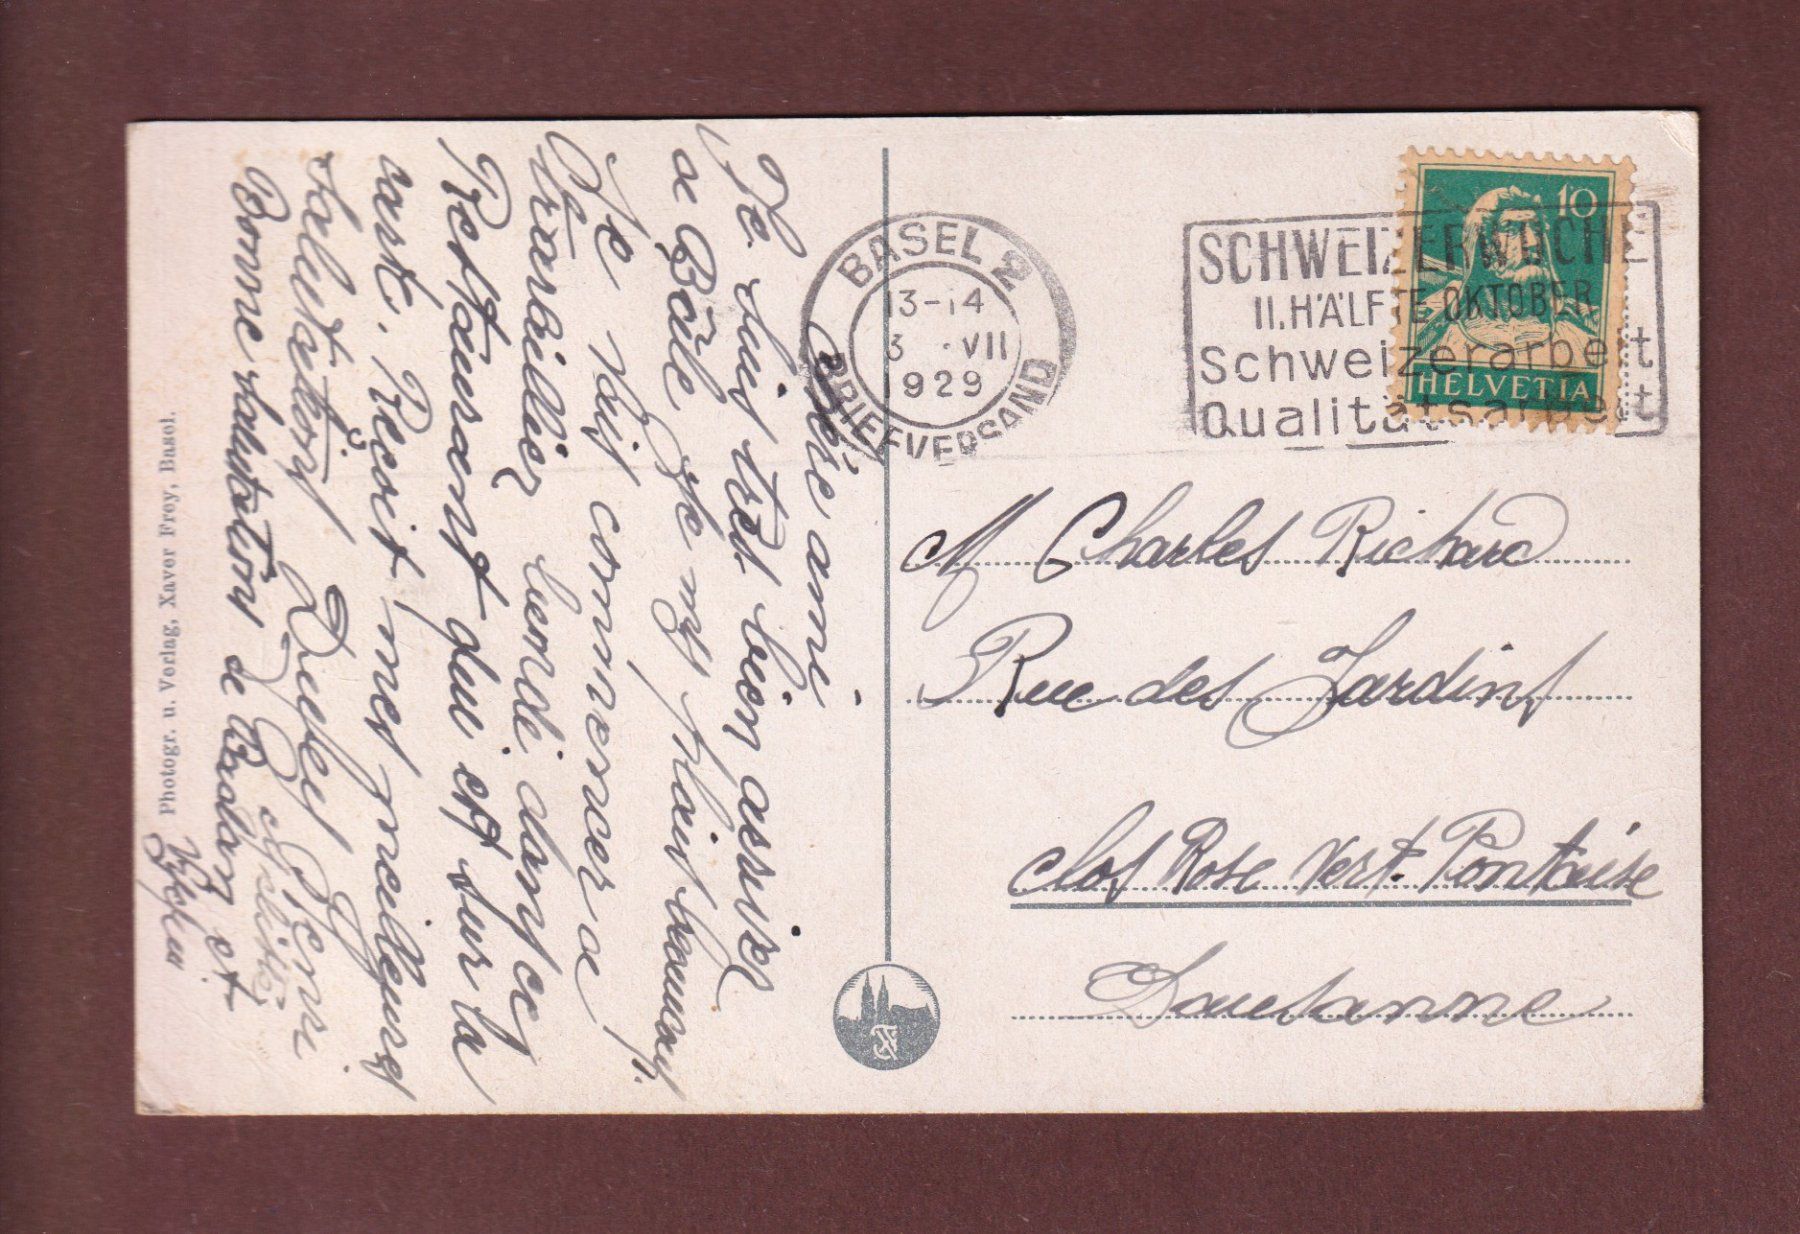 Chère ami
Je suis très bien arriver
a Bâle Je my plait beaucoup.
Je vais commencer a
travailler lundi dans ce
Restaurant qui est sur la
carte. Recoit mes meilleures
salutations
Bonne salutation de et
Photogr. u. Verlag, Xaver Frey, Basel.
BASEL 2
13-14
3 ·VII
1929
BRIEFVERSAND
SCHWEIZERWOCHE
II. HÄLFTE OKTOBER
Schweizerarbeit
Qualitätsarbeit
10
HELVETIA
M Charles Richard
Rue des Jardins
clos Rose Vert. Pontaise
Lausanne